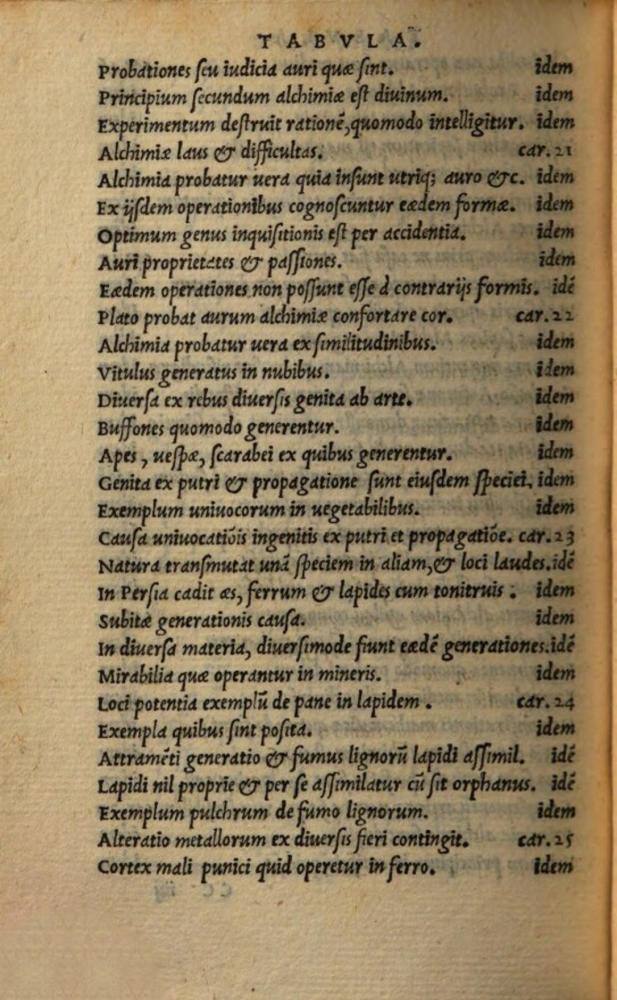 TABVLA.
Probationes ſeu iudicia auri quæ ſint. idem
Principium ſecundum alchimiæ eſt diuinum. idem
Experimentum deſtruit rationē, quomodo intelligitur. idem
Alchimiæ laus & difficultas. car. 21
Alchimia probatur uera quia inſunt utriq; auro &c. idem
Ex ijſdem operationibus cognoſcuntur eædem formæ. idem
Optimum genus inquiſitionis eſt per accidentia. idem
Auri proprietates & paſſiones. idem
Eædem operationes non poſſunt eſſe à contrarijs formis. idē
Plato probat aurum alchimiæ confortare cor. car. 22
Alchimia probatur uera ex ſimilitudinibus. idem
Vitulus generatus in nubibus. idem
Diuerſa ex rebus diuerſis genita ab arte. idem
Buffones quomodo generentur. idem
Apes, ueſpæ, ſcarabei ex quibus generentur. idem
Genita ex putri & propagatione ſunt eiuſdem ſpeciei. idem
Exemplum uniuocorum in uegetabilibus. idem
Cauſa uniuocatiõis ingenitis ex putri et propagatiõe. car. 23
Natura tranſmutat unā ſpeciem in aliam, & loci laudes. idē
In Perſia cadit æs, ferrum & lapides cum tonitruis. idem
Subitæ generationis cauſa. idem
In diuerſa materia, diuerſimode fiunt eædē generationes. idē
Mirabilia quæ operantur in mineris. idem
Loci potentia exemplū de pane in lapidem. car. 24
Exempla quibus ſint poſita. idem
Attramēti generatio & fumus lignorū lapidi aſſimil. idē
Lapidi nil proprie & per ſe aſſimilatur cū ſit orphanus. idē
Exemplum pulchrum de fumo lignorum. idem
Alteratio metallorum ex diuerſis fieri contingit. car. 25
Cortex mali punici quid operetur in ferro. idem